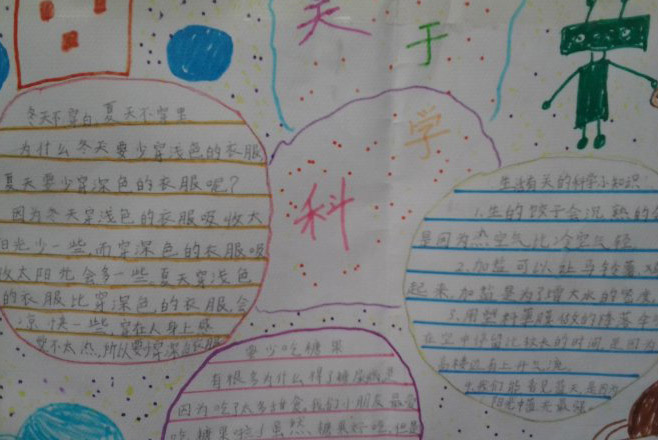 关于
科学
冬天不穿白,夏天不穿黑
为什么冬天要少穿浅色的衣服
夏天要少穿深色的衣服呢?
因为冬天穿浅色的衣服吸收太
阳光少一些,而穿深色的衣服吸
收太阳光会多一些,夏天穿浅色
的衣服比穿深色的衣服,会
凉快一些,穿在人身上感
觉不太热,所以要少穿深色衣服
要少吃糖果
有很多为什么得了糖尿病呢
因为吃了太多甜食,我们小朋友最爱
吃糖果啦!虽然糖果好吃,但是
生活有关的科学小知识
1.生的饺子会沉,熟的
是因为热空气比冷空气轻
2.加盐可以让马铃薯
起来,加盐是为了增大水的密度,
3.用塑料薄膜做的降落伞
在空中停留比较长的时间,是因为
高楼边有上升气流
4.我们能看见蓝天是因为
阳光中蓝光最强